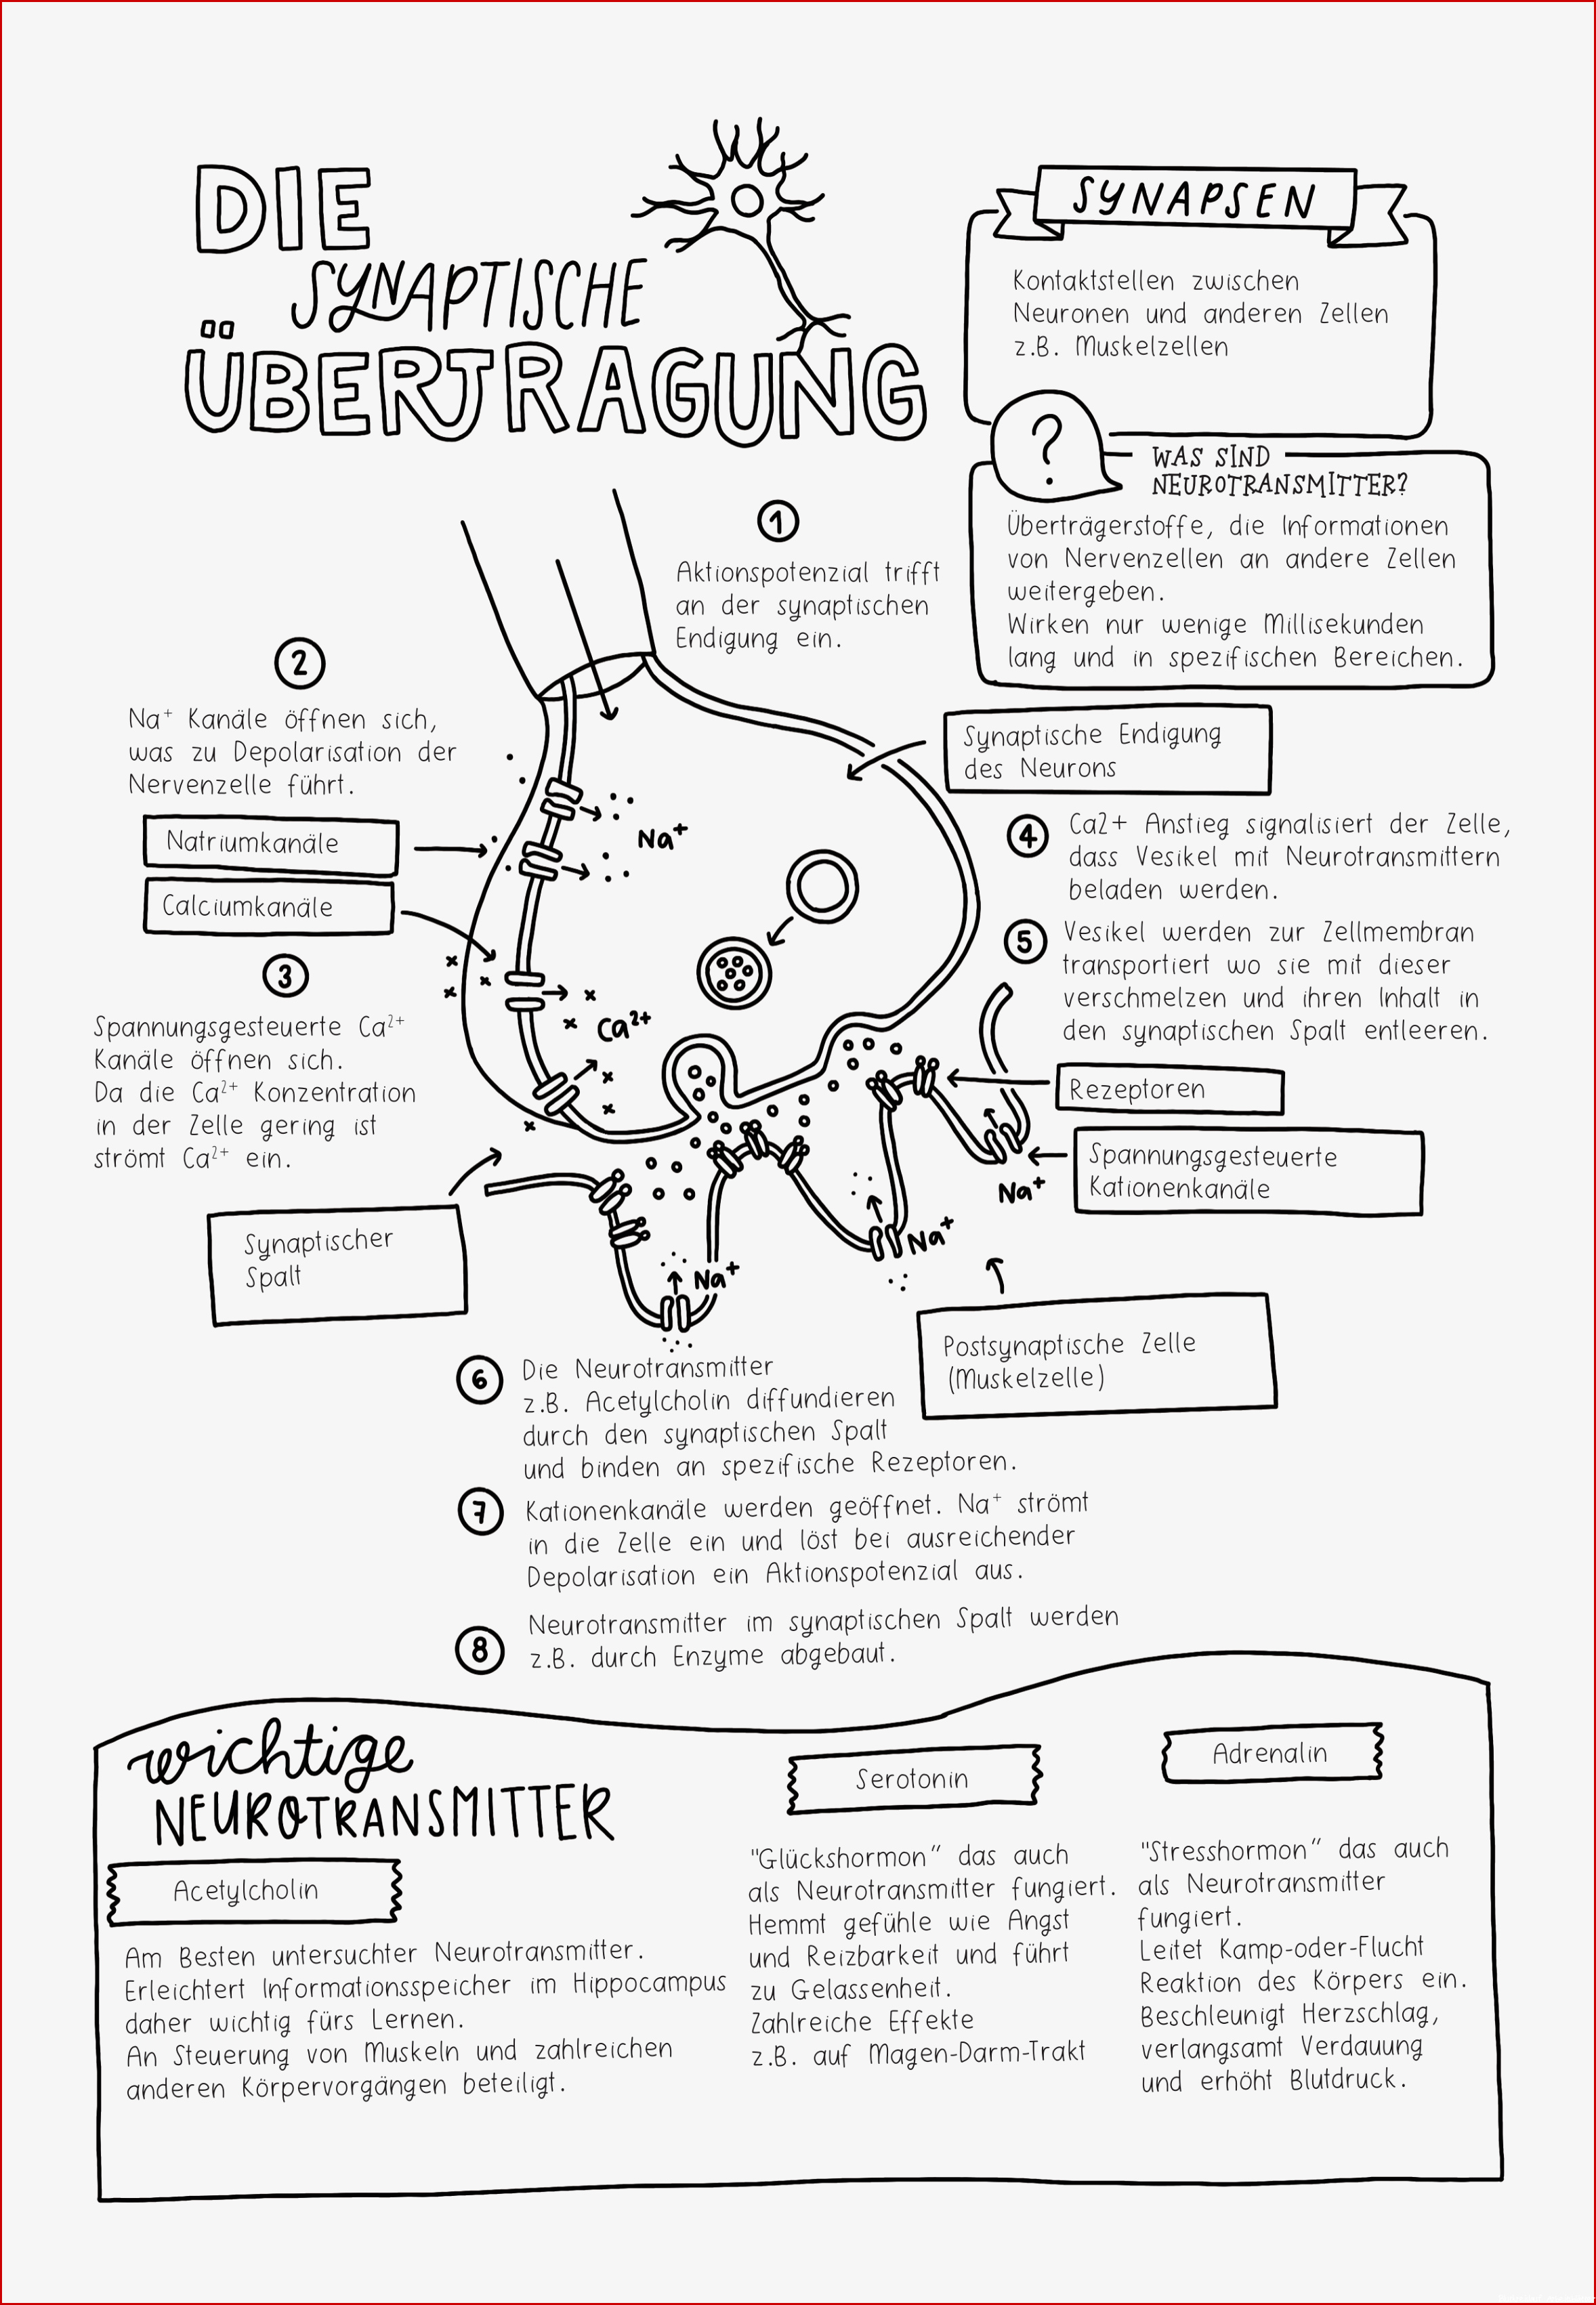 DIE
SYNAPTISCHE
ÜBERTRAGUNG
SYNAPSEN
Kontaktstellen zwischen
Neuronen und anderen Zellen
z.B. Muskelzellen
?
WAS SIND
NEUROTRANSMITTER?
Überträgerstoffe, die Informationen
von Nervenzellen an andere Zellen
weitergeben.
Wirken nur wenige Millisekunden
lang und in spezifischen Bereichen.
1
Aktionspotenzial trifft
an der synaptischen
Endigung ein.
2
Na⁺ Kanäle öffnen sich,
was zu Depolarisation der
Nervenzelle führt.
Natriumkanäle
Calciumkanäle
3
Spannungsgesteuerte Ca²⁺
Kanäle öffnen sich.
Da die Ca²⁺ Konzentration
in der Zelle gering ist
strömt Ca²⁺ ein.
Na⁺
Ca²⁺
Synaptische Endigung
des Neurons
4
Ca2+ Anstieg signalisiert der Zelle,
dass Vesikel mit Neurotransmittern
beladen werden.
5
Vesikel werden zur Zellmembran
transportiert wo sie mit dieser
verschmelzen und ihren Inhalt in
den synaptischen Spalt entleeren.
Rezeptoren
Spannungsgesteuerte
Kationenkanäle
Na⁺
Na⁺
Na⁺
Synaptischer
Spalt
Postsynaptische Zelle
(Muskelzelle)
6
Die Neurotransmitter
z.B. Acetylcholin diffundieren
durch den synaptischen Spalt
und binden an spezifische Rezeptoren.
7
Kationenkanäle werden geöffnet. Na⁺ strömt
in die Zelle ein und löst bei ausreichender
Depolarisation ein Aktionspotenzial aus.
8
Neurotransmitter im synaptischen Spalt werden
z.B. durch Enzyme abgebaut.
wichtige
NEUROTRANSMITTER
Acetylcholin
Am Besten untersuchter Neurotransmitter.
Erleichtert Informationsspeicher im Hippocampus
daher wichtig fürs Lernen.
An Steuerung von Muskeln und zahlreichen
anderen Körpervorgängen beteiligt.
Serotonin
"Glückshormon" das auch
als Neurotransmitter fungiert.
Hemmt gefühle wie Angst
und Reizbarkeit und führt
zu Gelassenheit.
Zahlreiche Effekte
z.B. auf Magen-Darm-Trakt
Adrenalin
"Stresshormon" das auch
als Neurotransmitter
fungiert.
Leitet Kamp-oder-Flucht
Reaktion des Körpers ein.
Beschleunigt Herzschlag,
verlangsamt Verdauung
und erhöht Blutdruck.